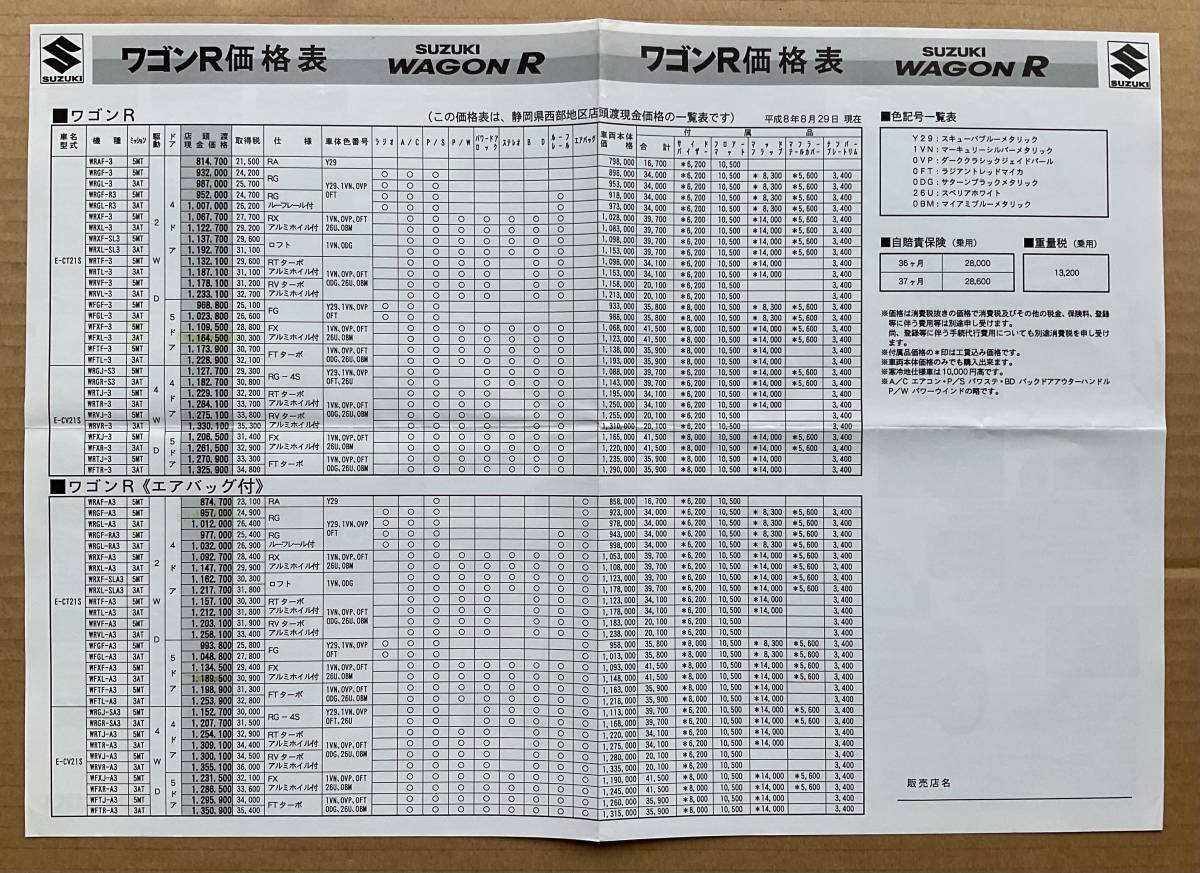 SUZUKI
ワゴンR価格表
SUZUKI
WAGON R
ワゴンR価格表
SUZUKI
WAGON R
SUZUKI
■ワゴンR
(この価格表は、静岡県西部地区店頭渡現金価格の一覧表です)
平成8年8月29日 現在
車名型式 機種 ミッション 駆動 ドア 店頭渡現金価格 取得税 仕様 車体色番号 ラジオ A/C P/S P/W パワードアロック ステレオ BD ルーフレール エアバッグ 車両本体価格 付属品 合計 サイドバイザー フロアーマット マッドフラップ マフラーテールカバー ナンバープレートリム
E-CT21S 2WD 4ドア
WRAF-3 5MT 814,700 21,500 RA Y29 ○ 798,000 16,700 *6,200 10,500
WRGF-3 5MT 932,000 24,200 RG Y29,1VN,0VP 0FT ○ ○ ○ 898,000 34,000 *6,200 10,500 *8,300 *5,600 3,400
WRGL-3 3AT 987,000 25,700 ○ ○ ○ 953,000 34,000 *6,200 10,500 *8,300 *5,600 3,400
WRGF-R3 5MT 952,000 24,700 RG ルーフレール付 ○ ○ ○ ○ 918,000 34,000 *6,200 10,500 *8,300 *5,600 3,400
WRGL-R3 3AT 1,007,000 26,200 ○ ○ ○ ○ 973,000 34,000 *6,200 10,500 *8,300 *5,600 3,400
WRXF-3 5MT 1,067,700 27,700 RX アルミホイル付 1VN,0VP,0FT 26U,0BM ○ ○ ○ ○ ○ ○ ○ 1,028,000 39,700 *6,200 10,500 *14,000 *5,600 3,400
WRXL-3 3AT 1,122,700 29,200 ○ ○ ○ ○ ○ ○ ○ 1,083,000 39,700 *6,200 10,500 *14,000 *5,600 3,400
WRXF-SL3 5MT 1,137,700 29,600 ロフト 1VN,0DG ○ ○ ○ ○ ○ ○ ○ 1,098,000 39,700 *6,200 10,500 *14,000 *5,600 3,400
WRXL-SL3 3AT 1,192,700 31,100 ○ ○ ○ ○ ○ ○ ○ 1,153,000 39,700 *6,200 10,500 *14,000 *5,600 3,400
WRTF-3 5MT 1,132,100 29,600 RTターボ アルミホイル付 1VN,0VP,0FT 0DG,26U,0BM 1,098,000 34,100 *6,200 10,500 *14,000 3,400
WRTL-3 3AT 1,187,100 31,100 1,153,000 34,100 *6,200 10,500 *14,000 3,400
WRVF-3 5MT 1,178,100 31,200 RVターボ アルミホイル付 1,158,000 20,100 *6,200 10,500 3,400
WRVL-3 3AT 1,233,100 32,700 1,213,000 20,100 *6,200 10,500 3,400
5ドア
WFGF-3 5MT 968,800 25,100 FG Y29,1VN,0VP 0FT ○ ○ ○ 933,000 35,800 *8,000 10,500 *8,300 *5,600 3,400
WFGL-3 3AT 1,023,800 26,600 ○ ○ ○ 988,000 35,800 *8,000 10,500 *8,300 *5,600 3,400
WFXF-3 5MT 1,109,500 28,800 FX アルミホイル付 1VN,0VP,0FT 26U,0BM 1,068,000 41,500 *8,000 10,500 *14,000 *5,600 3,400
WFXL-3 3AT 1,164,500 30,300 1,123,000 41,500 *8,000 10,500 *14,000 *5,600 3,400
WFTF-3 5MT 1,173,900 30,700 FTターボ 1VN,0VP,0FT 0DG,26U,0BM 1,138,000 35,900 *8,000 10,500 *14,000 3,400
WFTL-3 3AT 1,228,900 32,100 1,193,000 35,900 *8,000 10,500 *14,000 3,400
E-CV21S 4WD 4ドア
WRGJ-S3 5MT 1,127,700 29,300 RG-4S Y29,1VN,0VP 0FT,26U 1,088,000 39,700 *6,200 10,500 *14,000 *5,600 3,400
WRGR-S3 3AT 1,182,700 30,800 1,143,000 39,700 *6,200 10,500 *14,000 *5,600 3,400
WRTJ-3 5MT 1,229,100 32,200 RTターボ アルミホイル付 1VN,0VP,0FT 0DG,26U,0BM 1,195,000 34,100 *6,200 10,500 *14,000 3,400
WRTR-3 3AT 1,284,100 33,700 1,250,000 34,100 *6,200 10,500 *14,000 3,400
WRVJ-3 5MT 1,275,100 33,800 RVターボ アルミホイル付 1,255,000 20,100 *6,200 10,500 3,400
WRVR-3 3AT 1,330,100 35,300 1,310,000 20,100 *6,200 10,500 3,400
5ドア
WFXJ-3 5MT 1,206,500 31,400 FX アルミホイル付 1VN,0VP,0FT 26U,0BM 1,165,000 41,500 *8,000 10,500 *14,000 *5,600 3,400
WFXR-3 3AT 1,261,500 32,900 1,220,000 41,500 *8,000 10,500 *14,000 *5,600 3,400
WRTJ-3 5MT 1,270,900 33,300 FTターボ 1VN,0VP,0FT 0DG,26U,0BM 1,235,000 35,900 *8,000 10,500 *14,000 3,400
WFTR-3 3AT 1,325,900 34,800 1,290,000 35,900 *8,000 10,500 *14,000 3,400
■ワゴンR《エアバッグ付》
E-CT21S 2WD 4ドア
WRAF-A3 5MT 874,700 23,100 RA Y29 ○ ○ 858,000 16,700 *6,200 10,500
WRGF-A3 5MT 957,000 24,900 RG Y29,1VN,0VP 0FT 923,000 34,000 *6,200 10,500 *8,300 *5,600 3,400
WRGL-A3 3AT 1,012,000 26,400 978,000 34,000 *6,200 10,500 *8,300 *5,600 3,400
WRGF-RA3 5MT 977,000 25,400 RG ルーフレール付 943,000 34,000 *6,200 10,500 *8,300 *5,600 3,400
WRGL-RA3 3AT 1,032,000 26,900 998,000 34,000 *6,200 10,500 *8,300 *5,600 3,400
WRXF-A3 5MT 1,092,700 28,400 RX アルミホイル付 1VN,0VP,0FT 26U,0BM 1,053,000 39,700 *6,200 10,500 *14,000 *5,600 3,400
WRXL-A3 3AT 1,147,700 29,900 1,108,000 39,700 *6,200 10,500 *14,000 *5,600 3,400
WRXF-SLA3 5MT 1,162,700 30,300 ロフト 1VN,0DG 1,123,000 39,700 *6,200 10,500 *14,000 *5,600 3,400
WRXL-SLA3 3AT 1,217,700 31,800 1,178,000 39,700 *6,200 10,500 *14,000 *5,600 3,400
WRTF-A3 5MT 1,157,100 30,300 RTターボ アルミホイル付 1VN,0VP,0FT 0DG,26U,0BM 1,123,000 34,100 *6,200 10,500 *14,000 3,400
WRTL-A3 3AT 1,212,100 31,800 1,178,000 34,100 *6,200 10,500 *14,000 3,400
WRVF-A3 5MT 1,203,100 31,900 RVターボ アルミホイル付 1,183,000 20,100 *6,200 10,500 3,400
WRVL-A3 3AT 1,258,100 33,400 1,238,000 20,100 *6,200 10,500 3,400
5ドア
WFGF-A3 5MT 993,800 25,800 FG Y29,1VN,0VP 0FT 958,000 35,800 *8,000 10,500 *8,300 *5,600 3,400
WFGL-A3 3AT 1,048,800 27,800 1,013,000 35,800 *8,000 10,500 *8,300 *5,600 3,400
WFXF-A3 5MT 1,134,500 29,400 FX アルミホイル付 1VN,0VP,0FT 26U,0BM 1,093,000 41,500 *8,000 10,500 *14,000 *5,600 3,400
WFXL-A3 3AT 1,189,500 30,900 1,148,000 41,500 *8,000 10,500 *14,000 *5,600 3,400
WFTF-A3 5MT 1,198,900 31,300 FTターボ 1VN,0VP,0FT 0DG,26U,0BM 1,163,000 35,900 *8,000 10,500 *14,000 3,400
WFTL-A3 3AT 1,253,900 32,800 1,218,000 35,900 *8,000 10,500 *14,000 3,400
E-CV21S 4WD 4ドア
WRGJ-SA3 5MT 1,152,700 30,000 RG-4S Y29,1VN,0VP 0FT,26U 1,113,000 39,700 *6,200 10,500 *14,000 *5,600 3,400
WRGR-SA3 3AT 1,207,700 31,500 1,168,000 39,700 *6,200 10,500 *14,000 *5,600 3,400
WRTJ-A3 5MT 1,254,100 32,900 RTターボ アルミホイル付 1VN,0VP,0FT 0DG,26U,0BM 1,220,000 34,100 *6,200 10,500 *14,000 3,400
WRTR-A3 3AT 1,309,100 34,400 1,275,000 34,100 *6,200 10,500 *14,000 3,400
WRVJ-A3 5MT 1,300,100 34,500 RVターボ アルミホイル付 1,280,000 20,100 *6,200 10,500 3,400
WRVR-A3 3AT 1,355,100 36,000 1,335,000 20,100 *6,200 10,500 3,400
5ドア
WFXJ-A3 5MT 1,231,500 32,100 FX アルミホイル付 1VN,0VP,0FT 26U,0BM 1,190,000 41,500 *8,000 10,500 *14,000 *5,600 3,400
WFXR-A3 3AT 1,286,500 33,600 1,245,000 41,500 *8,000 10,500 *14,000 *5,600 3,400
WFTJ-A3 5MT 1,295,900 34,000 FTターボ 1VN,0VP,0FT 0DG,26U,0BM 1,260,000 35,900 *8,000 10,500 *14,000 3,400
WFTR-A3 3AT 1,350,900 35,400 1,315,000 35,900 *8,000 10,500 *14,000 3,400
■色記号一覧表
Y29:スキューバブルーメタリック
1VN:マーキュリーシルバーメタリック
0VP:ダーククラシックジェイドパール
0FT:ラジアントレッドマイカ
0DG:サターンブラックメタリック
26U:スペリアホワイト
0BM:マイアミブルーメタリック
■自賠責保険(乗用)
36ヶ月 28,000
37ヶ月 28,600
■重量税(乗用)
13,200
※価格は消費税抜きの価格で消費税及びその他の税金、保険料、登録
等に伴う費用等は別途申し受けます。
尚、登録等に伴う手続代行費用についても別途消費税を申し受け
ます。
※付属品価格の*印は工賃込み価格です。
※車両本体価格のみでも購入出来ます。
※寒冷地仕様車は10,000円高です。
※A/C エアコン・P/S パワステ・BD バックドアアウターハンドル
P/W パワーウインドの略です。
販売店名